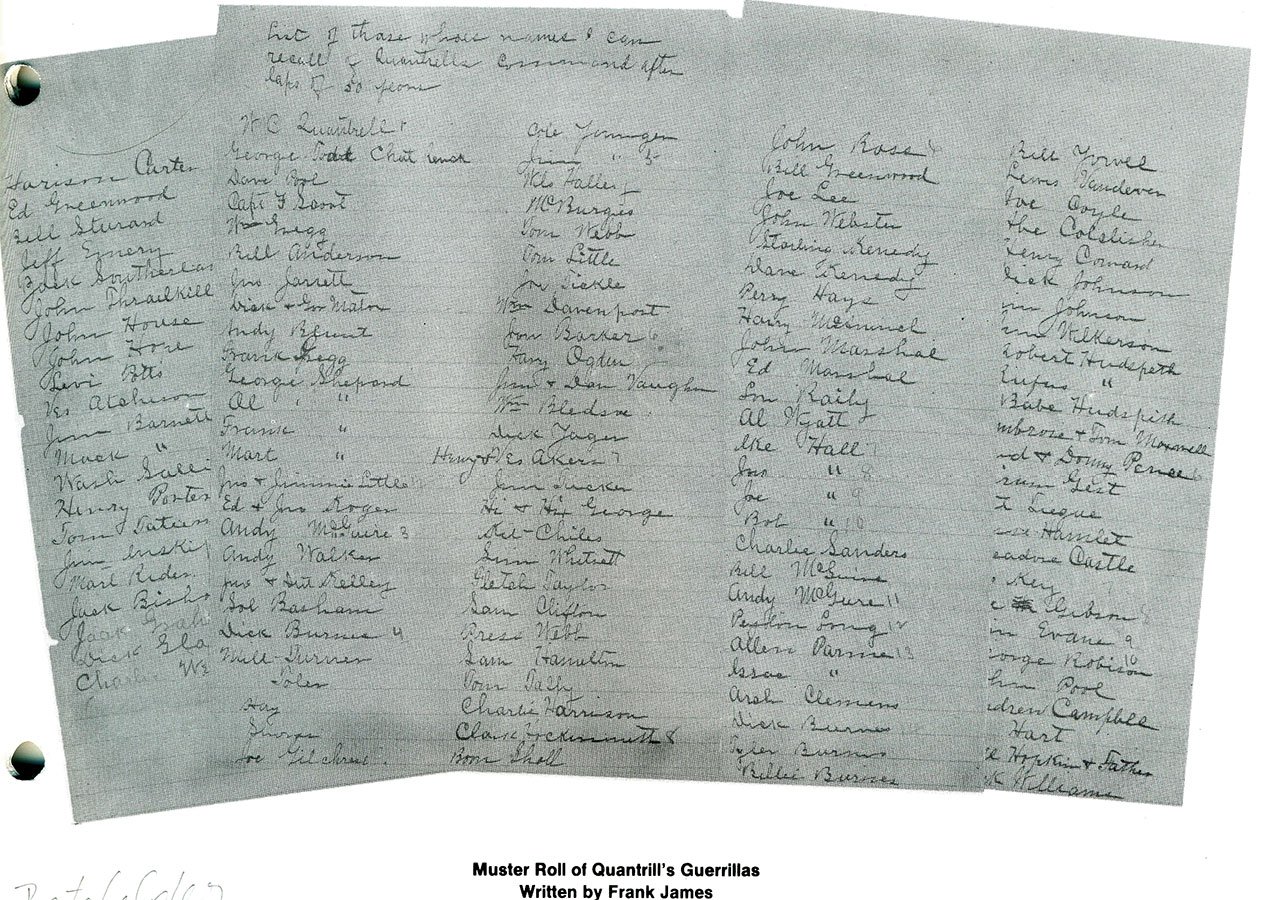 List of those whoes names I can
recall of Quantrells Command after
laps of 50 years
Harison Carter
Ed Greenwood
Bell
Jeff Emery
Back Southerlan
John Thrailkill
John House
John Hope
Levi Potts
Ves Atchison
Jim Barnett
Mack "
Wash
Henry Porter
Tom
Jim
Marl Rider
Jack Bisho
Jack
Dick
Charlie
W C Quantrell
George Todd
Dave Pool
Capt
Wm Gregg
Bill Anderson
Jno Jarrett
Dick & Geo Maton
Andy Blunt
Frank Gregg
George Shepard
Al " "
Frank "
Mart "
Jno & Jimmie Little
Ed & Jno Koger
Andy McGuire 3
Andy Walker
Jno & Kelley
Sol Basham
Dick Burnes 4
Will Turner
Toler
Hay
George
Joe Gilchrist
Cole Younger
Jim " 5
McBurgis
Tom Webb
Tom Little
Joe Tickle
Wm Davenport
Tom Barker
Harry Ogden
Jim & Dan Vaughn
Wm Bledsoe
Dick Yager
Henry & Ves Akers 7
Jim Tucker
Hi & Hix George
Kit Chiles
Sim Whitsett
Fletch Taylor
Sam Clifton
Press Webb
Sam Hamilton
Tom Tally
Charlie Harrison
Boon Sholl
John Ross
Bill Greenwood
Joe Lee
John Webster
Starling Kenedy
Dave Kenedy
Perry Hays
Harry
John Marshal
Ed Marshal
Lon Raily
Al Wyatt
Ike Hall 7
Jno " 8
Joe " 9
Bob " 10
Charlie Sanders
Bill McGuire
Andy McGuire 11
Peyton Long 12
Allen Parmer 13
Isaac "
Arch Clemens
Dick Burnes
Tyler Burnes
Billie Burnes
Bill Yowel
Lewis Vandever
Joe Coyle
Henry Coward
Dick Johnson
Johnson
Wilkerson
Robert Hudspeth
Rufus "
Babe Hudspith
mbrose & Tom Maxwell
& Donny Pence
Gist
Hamlet
eadore Castle
Key
Gibson
Evans 9
eorge Robison 10
Pool
ndrew Campbell
Hart
Hopkins & Father
Williams
Muster Roll of Quantrill's Guerrillas
Written by Frank James